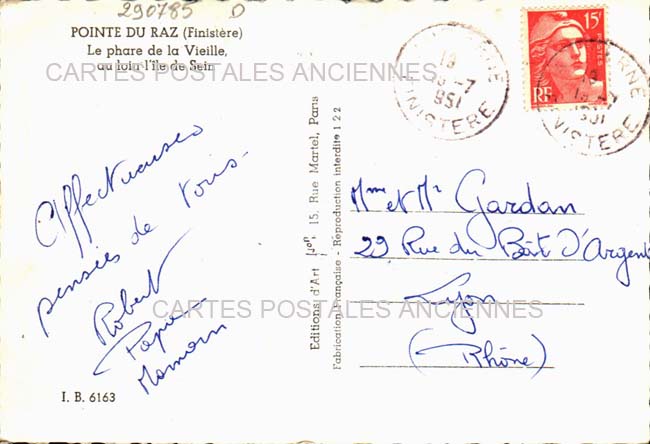 290785 D
POINTE DU RAZ (Finistère)
Le phare de la Vieille,
au loin l'île de Sein
CARTES POSTALES ANCIENNES
18
-7
951
FINISTERE
15F
POSTES
RF
18
-7
FINISTERE
Affectueuses
pensées de tous-
Robert
Papa
Maman
Editions d'Art Jos, 15, Rue Martel, Paris
Fabrication Française - Reproduction interdite 122
Mme et Mr Gardan
29 Rue du Bât D'Argent
Lyon
(Rhône)
CARTES POSTALES ANCIENNES
I. B. 6163